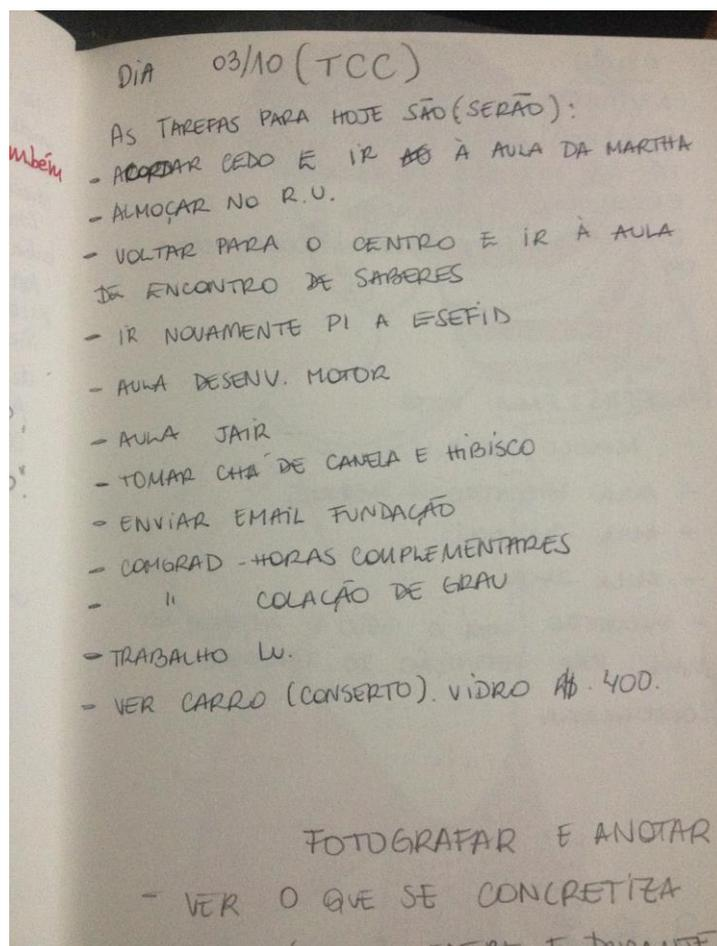 mbém
DIA 03/10 (TCC)
AS TAREFAS PARA HOJE SÃO (SERÃO):
- ACORDAR CEDO E IR À AULA DA MARTHA
- ALMOÇAR NO R.U.
- VOLTAR PARA O CENTRO E IR À AULA
DE ENCONTRO DE SABERES
- IR NOVAMENTE P/ A ESEFID
- AULA DESENV. MOTOR
- AULA JAIR
- TOMAR CHÁ DE CANELA E HIBISCO
- ENVIAR EMAIL FUNDAÇÃO
- COMGRAD - HORAS COMPLEMENTARES
- " COLAÇÃO DE GRAU
- TRABALHO LU.
- VER CARRO (CONSERTO). VIDRO R$. 400.
FOTOGRAFAR E ANOTAR
- VER O QUE SE CONCRETIZA
E DURANTE